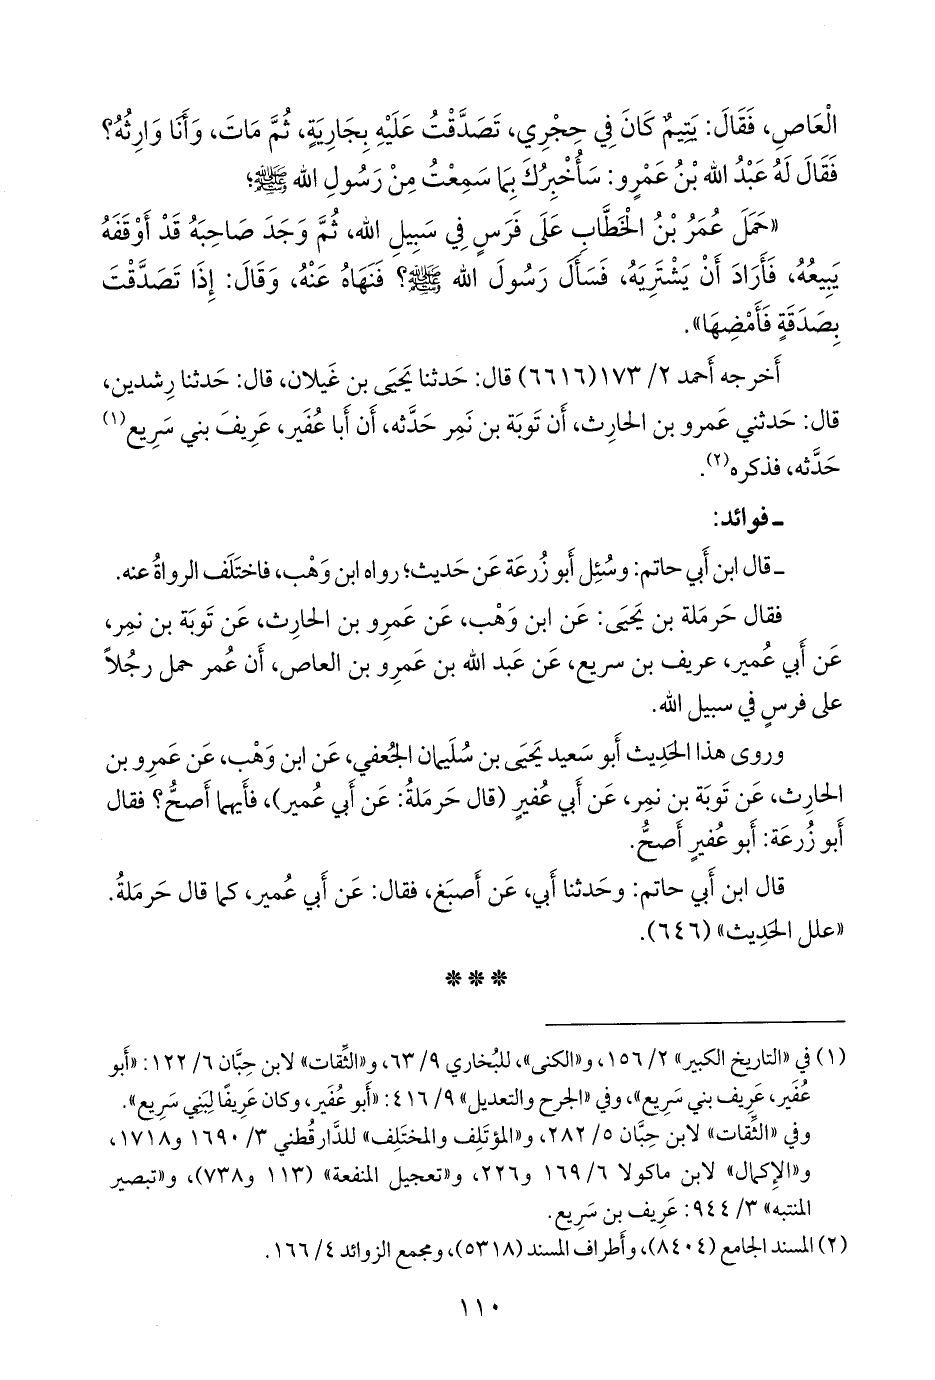 الْعَاصِ، فَقَالَ: يَتِيمٌ كَانَ فِي حِجْرِي، تَصَدَّقْتُ عَلَيْهِ بِجَارِيَةٍ، ثُمَّ مَاتَ، وَأَنَا وَارِثُهُ؟
فَقَالَ لَهُ عَبْدُ الله بْنُ عَمْرٍو: سَأُخْبِرُكَ بِمَا سَمِعْتُ مِنْ رَسُولِ الله ﷺ؛
«حَمَلَ عُمَرُ بْنُ الْخَطَّابِ عَلَى فَرَسٍ فِي سَبِيلِ الله، ثُمَّ وَجَدَ صَاحِبَهُ قَدْ أَوْقَفَهُ
يَبِيعُهُ، فَأَرَادَ أَنْ يَشْتَرِيَهُ، فَسَأَلَ رَسُولَ الله ﷺ؟ فَنَهَاهُ عَنْهُ، وَقَالَ: إِذَا تَصَدَّقْتَ
بِصَدَقَةٍ فَأَمْضِهَا».
أَخرجه أَحمد ٢/ ١٧٣(٦٦١٦) قال: حَدثنا يَحيَى بن غَيلان، قال: حَدثنا رِشدين،
قال: حَدثني عَمرو بن الحارِث، أَن تَوبَة بن نَمِر حَدَّثه، أَن أَبا عُفَير، عَريفَ بني سَريع(١)
حَدَّثه، فذكره(٢).
ـ فوائد:
ـ قال ابن أَبي حاتم: وسُئِل أَبو زُرعَة عَن حَديث؛ رواه ابن وَهْب، فاختَلَف الرواةُ عنه.
فقال حَرمَلة بن يَحيَى: عَن ابن وَهْب، عَن عَمرِو بن الحارِث، عَن تَوبَة بن نمِر،
عَن أَبي عُمير، عريف بن سريع، عَن عَبد الله بن عَمرو بن العاص، أَن عُمر حمل رجُلاً
على فرسٍ في سبيل الله.
وروى هذا الحَدِيث أَبو سَعيد يَحيَى بن سُلَيمان الجُعفي، عَن ابن وَهْب، عَن عَمرِو بن
الحارِث، عَن تَوبَة بن نمِر، عَن أَبي عُفيرٍ (قال حَرمَلةُ: عَن أَبي عُمير)، فأَيهما أَصحُّ؟ فقال
أَبو زُرعَة: أَبو عُفيرٍ أَصحُّ.
قال ابن أَبي حاتم: وحَدثنا أَبي، عَن أَصبَغ، فقال: عَن أَبي عُمير، كما قال حَرمَلةُ.
«علل الحَدِيث» (٦٤٦).
***
(١) في «التاريخ الكبير» ٢/ ١٥٦، و«الكنى»، للبُخاري ٩/ ٦٣، و«الثِّقات» لابن حِبَّان ٦/ ١٢٢: «أَبو
عُفَير، عَريف بني سَريع»، وفي «الجرح والتعديل» ٩/ ٤١٦: «أَبو عُفَير، وكان عَريفًا لِبَني سَريع».
وفي «الثِّقات» لابن حِبَّان ٥/ ٢٨٢، و«المؤتَلِف والمختَلِف» للدَّارقُطني ٣/ ١٦٩٠ و١٧١٨،
و«الإِكمال» لابن ماكولا ٦/ ١٦٩ و٢٢٦، و«تعجيل المنفعة» (١١٣ و٧٣٨)، و«تبصير
المنتبه» ٣/ ٩٤٤: عَريف بن سَريع.
(٢) المسند الجامع (٨٤٠٤)، وأَطراف المسند (٥٣١٨)، ومجمع الزوائد ٤/ ١٦٦.
١١٠